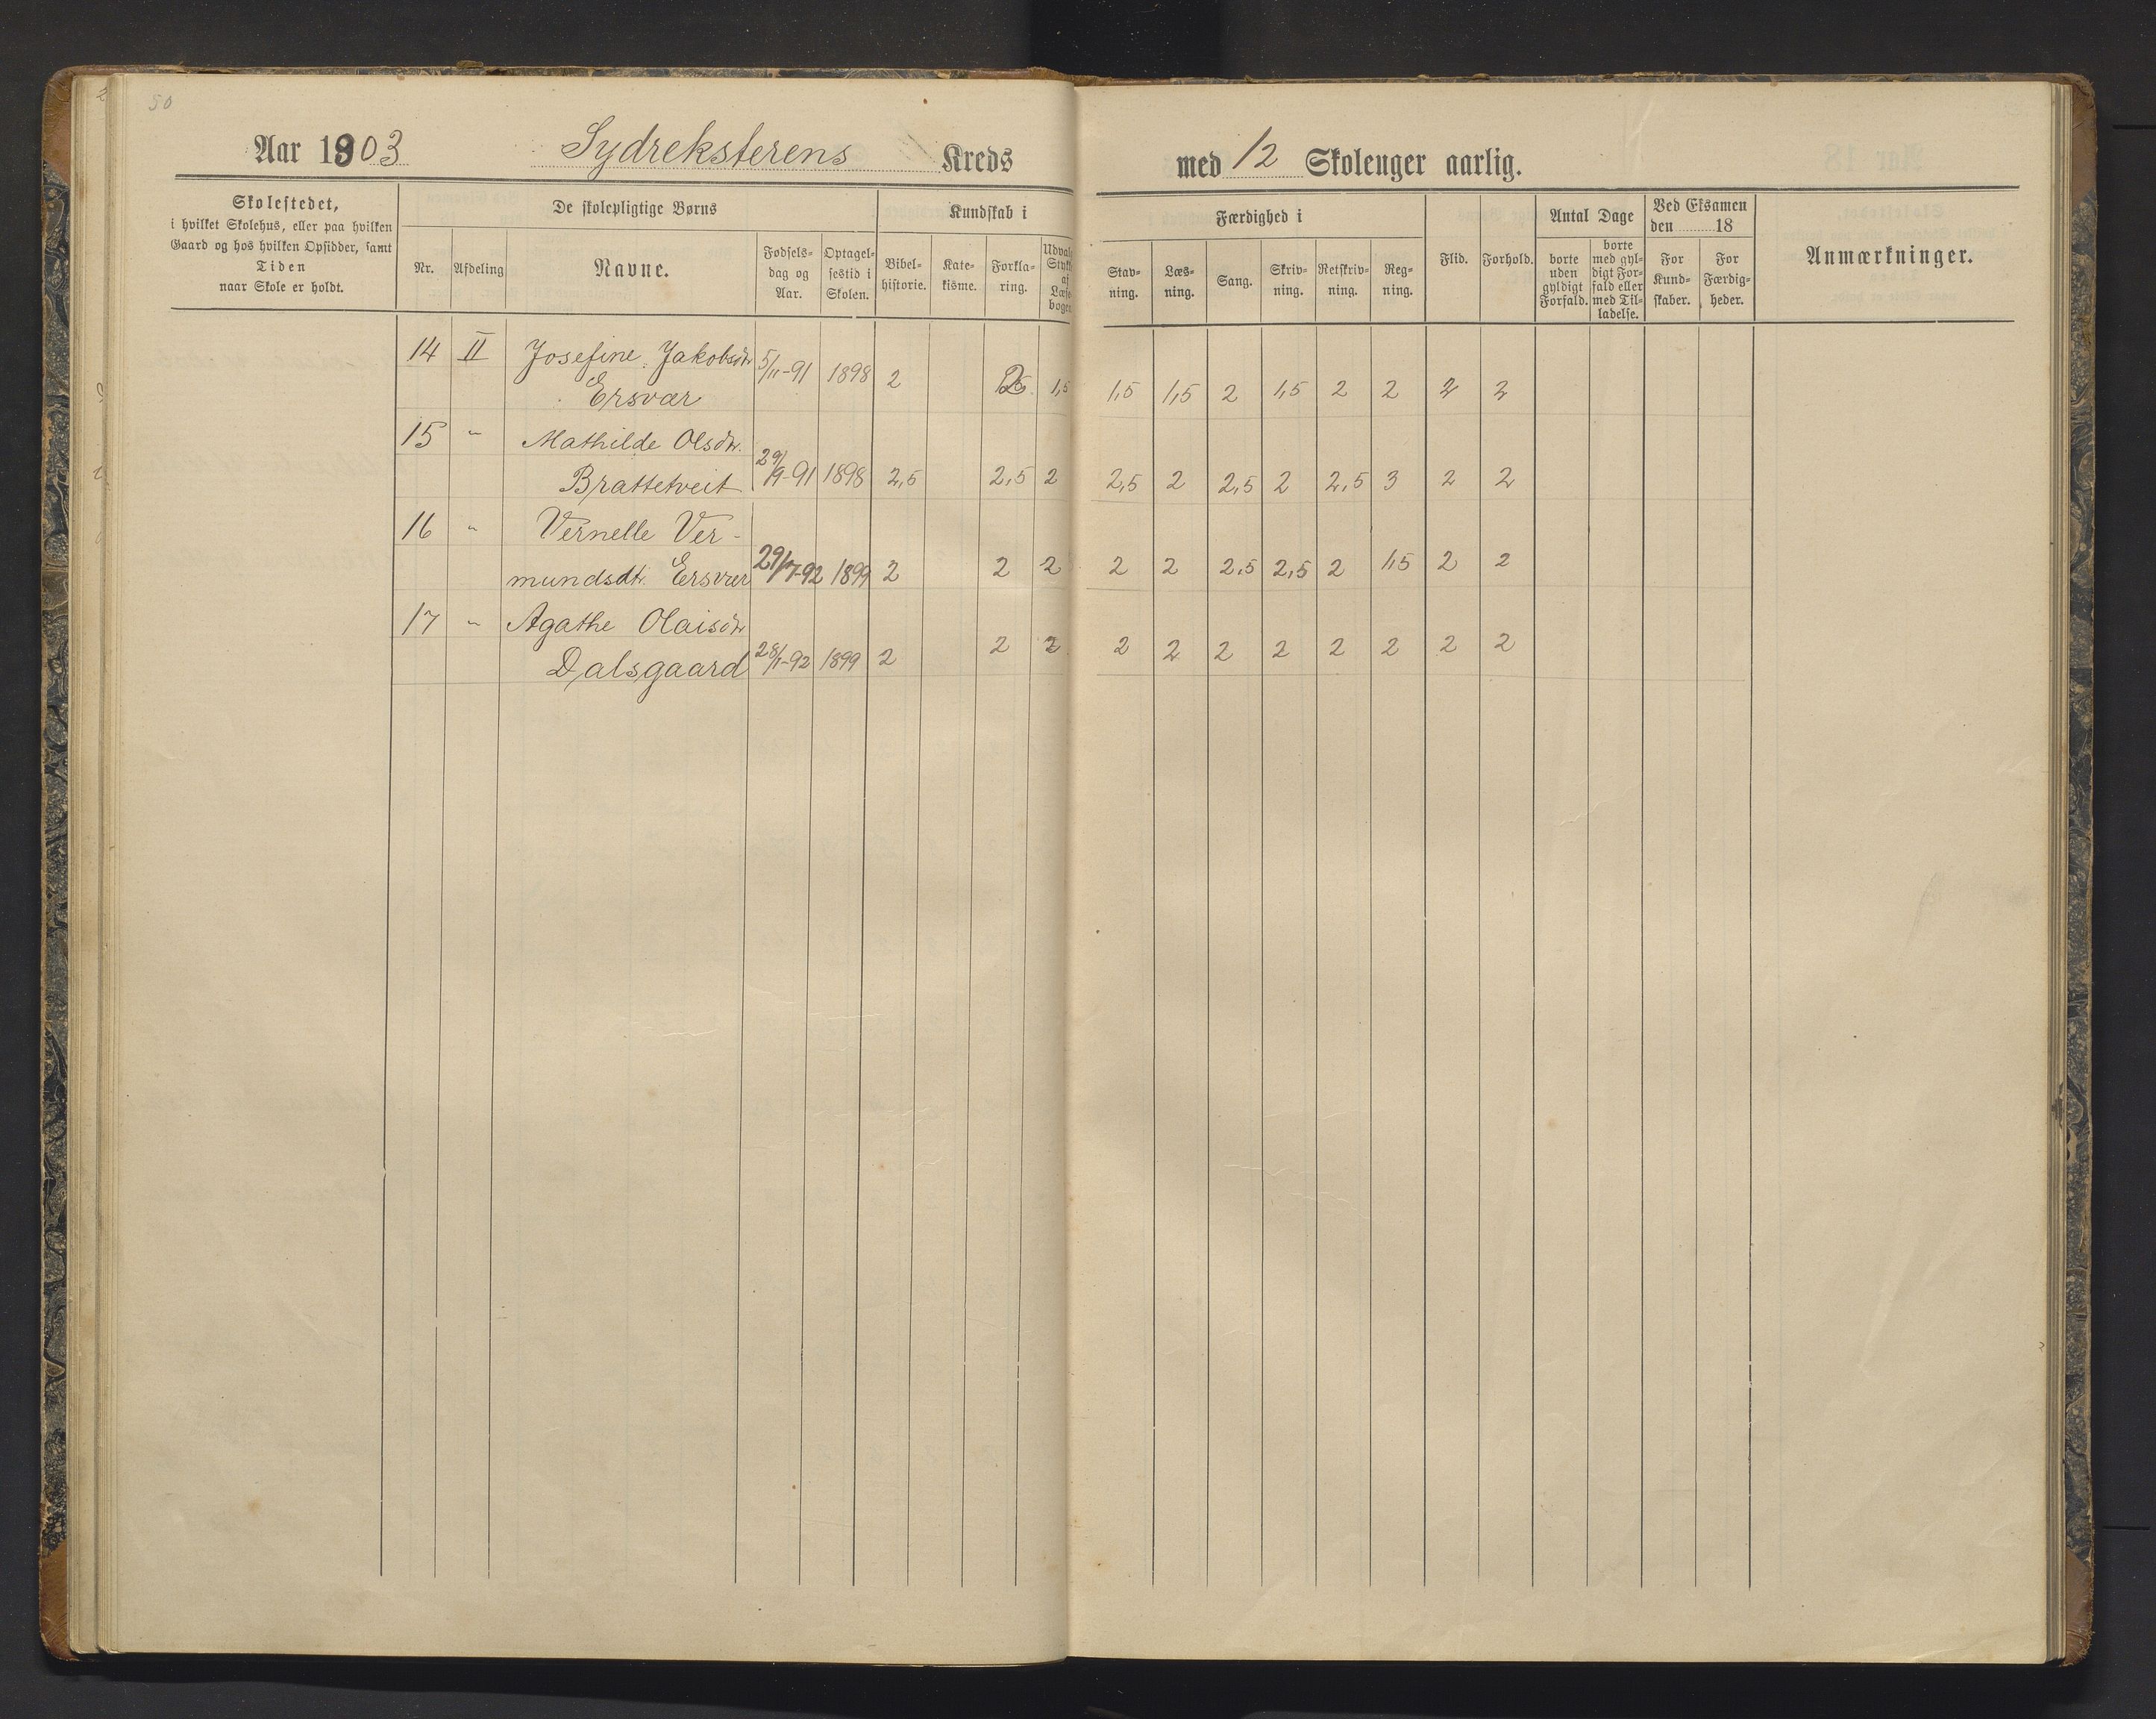 50
Aar 1903 Sydreksterens Kreds
med 12 Skoleuger aarlig.
Skolestedet,
i hvilket Skolehus, eller paa hvilken
Gaard og hos hvilken Opsidder, samt
Tiden
naar Skole er holdt.
De skolepligtige Børns
Nr.
Afdeling
Navne.
Fødsels-
dag og
Aar.
Optagel-
sestid i
Skolen.
Kundskab i
Bibel-
historie.
Kate-
kisme.
Forkla-
ring.
Udvalg
Stykk
af
Læse-
bogen
Færdighed i
Stav-
ning.
Læs-
ning.
Sang.
Skriv-
ning.
Retskriv-
ning.
Reg-
ning.
Flid.
Forhold.
Antal Dage
borte
uden
gyldigt
Forfald.
borte
med gyl-
digt For-
fald eller
med Til-
ladelse.
Ved Eksamen
den 18
For
Kund-
skaber.
For
Færdig-
heder.
Anmærkninger.
14 II Josefine Jakobsdtr
Ersvær 5/11-91 1898 2 2 1,5 1,5 1,5 2 1,5 2 2 2 2
15 " Mathilde Olsdtr.
Brattetveit 29/9-91 1898 2,5 2,5 2 2,5 2 2,5 2 2,5 3 2 2
16 " Vernelle Ver-
mundsdtr. Ersvær 29/7-92 1899 2 2 2 2 2 2,5 2,5 2 1,5 2 2
17 " Agathe Olaisdtr
Dalsgaard 28/1-92 1899 2 2 2 2 2 2 2 2 2 2 2